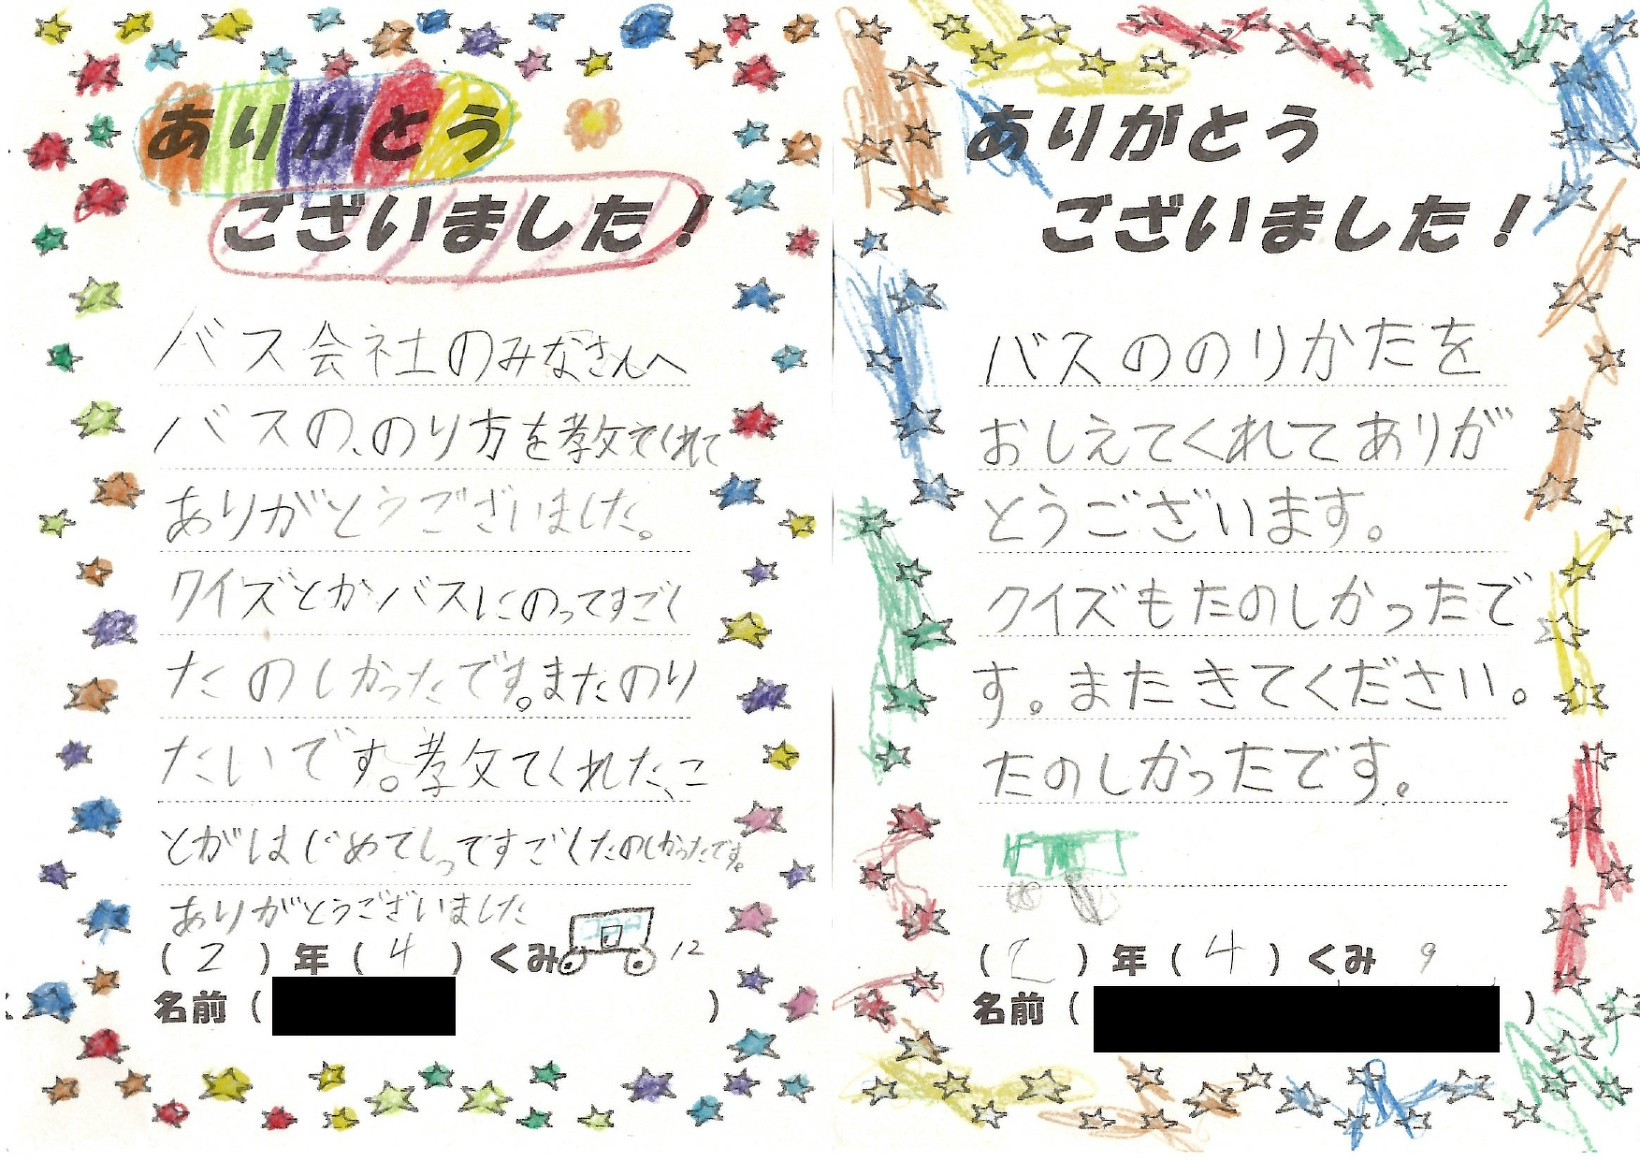 ありがとう
ございました!
バス会社のみなさんへ
バスの、のり方を教えてくれて
ありがとうございました。
クイズとかバスにのってすごく
たのしかったです。またのり
たいです。教えてくれた、こ
とがはじめてしってすごくたのしかったです。
ありがとうございました
(2)年(4)くみ 12
名前( )
ありがとう
ございました!
バスののりかたを
おしえてくれてありが
とうございます。
クイズもたのしかったで
す。またきてください。
たのしかったです。
(2)年(4)くみ 9
名前( )